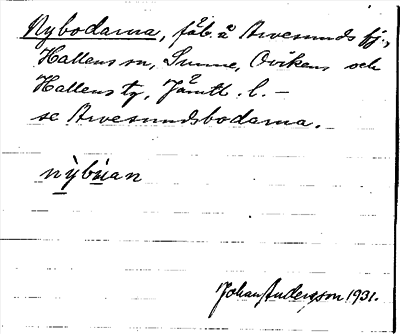 Nybodarna, fäb. å Arvesunds fj.,
Hallens sn, Sunne, Ovikens och
Hallens tg, Jämtl. l. –
se Arvesundsbodarna.
nỳbúan
Johan Anderson 1931.